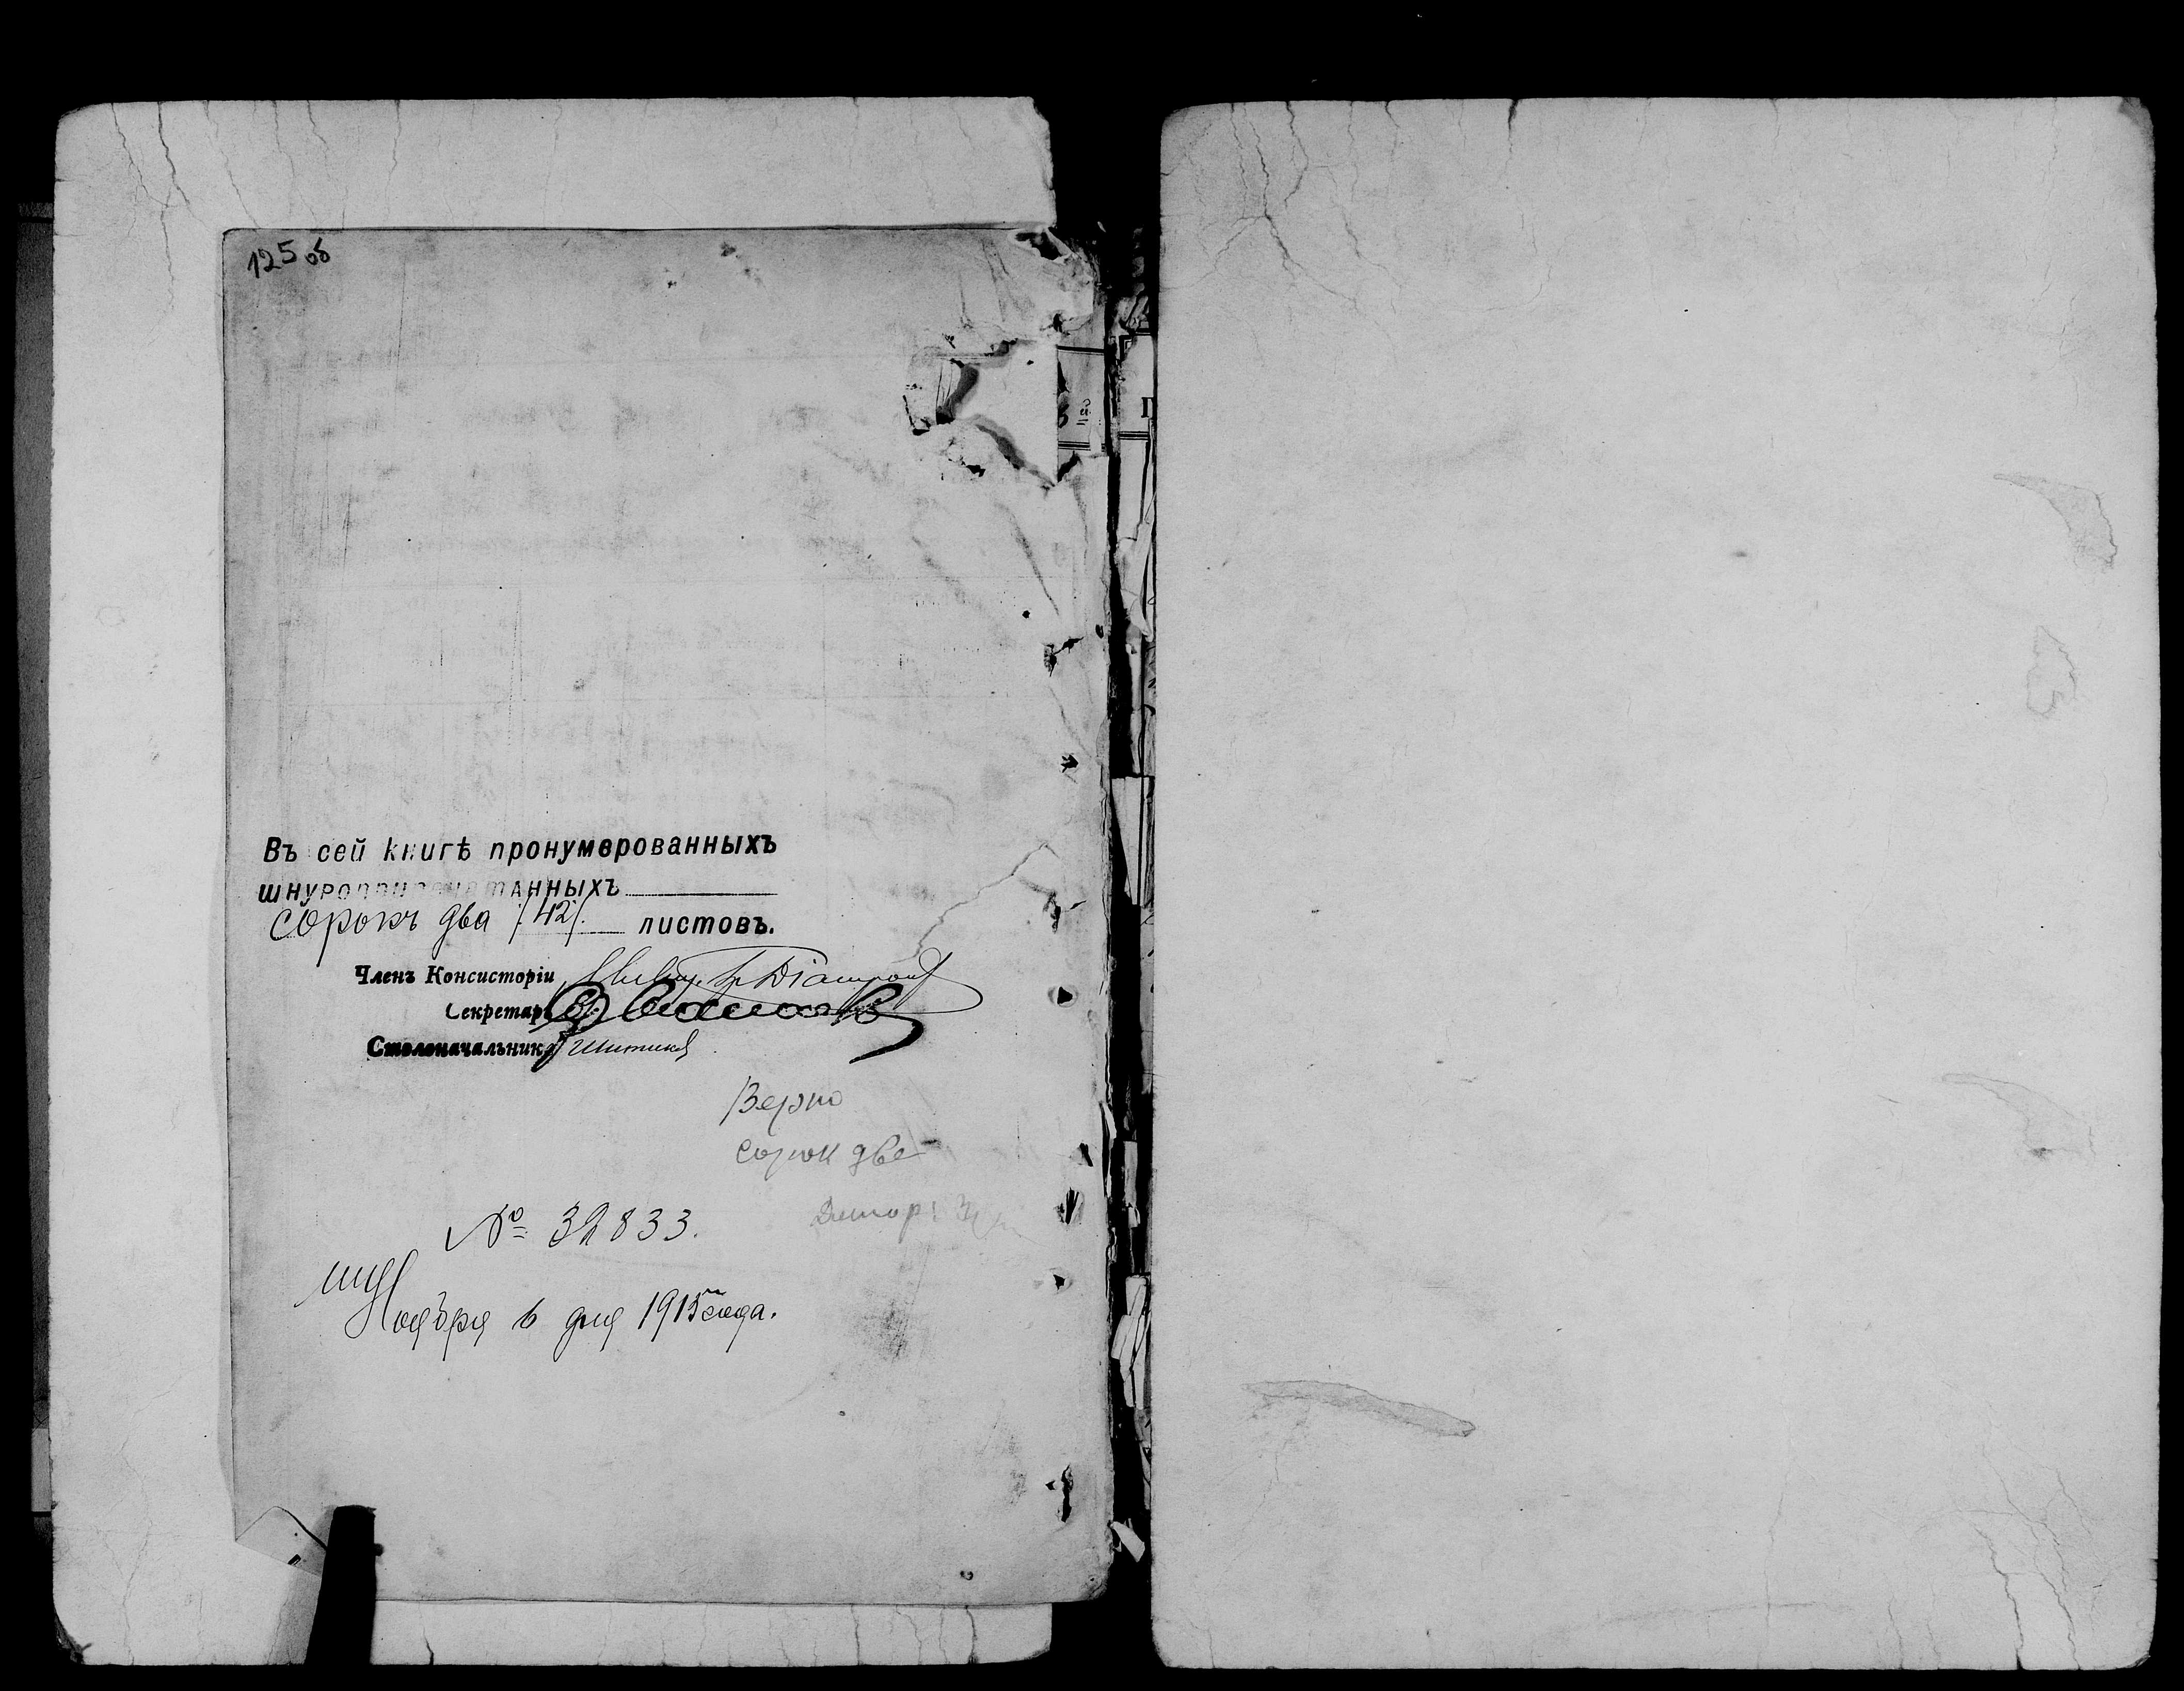 125 об
Въ сей книгѣ пронумерованныхъ
шнуроприпечатанныхъ
сорокъ два /42/. листовъ.
Членъ Консисторіи
Секретарь
Столоначальникъ
Верно
сорок две
№ 32833.
Ноября 6 дня 1915 года.